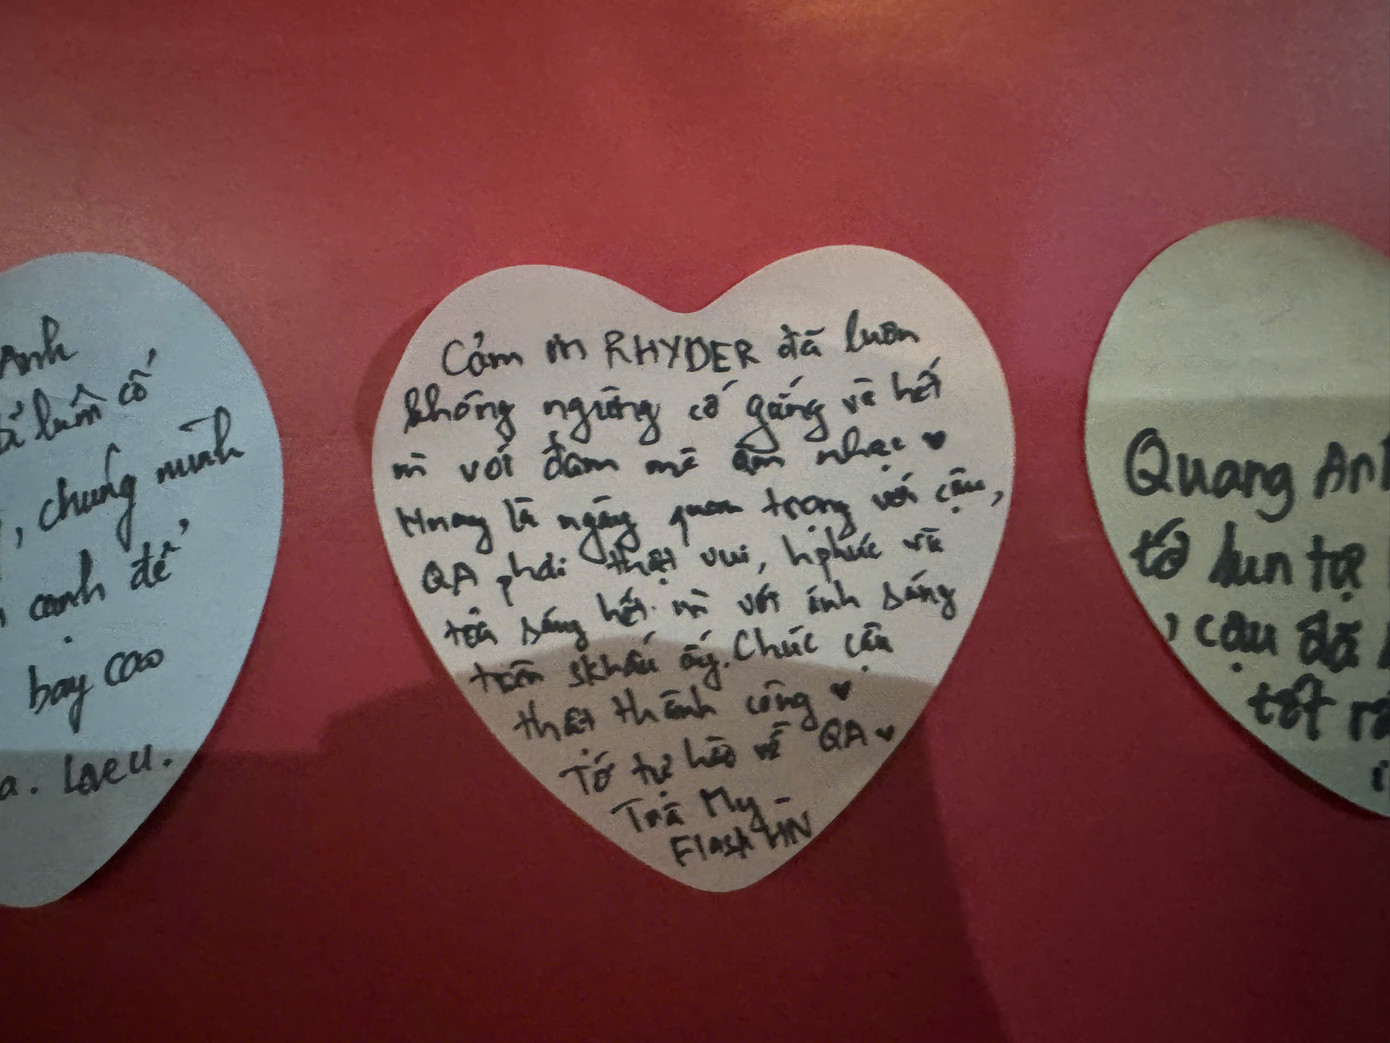 Anh
luôn cố
, chứng minh
cánh để
bay cao
a. Love u.
Cảm ơn RHYDER đã luôn
không ngừng cố gắng và hết
mì với đam mê âm nhạc ♥
Hnay là ngày quan trọng với cậu,
QA phải thật vui, hphúc và
tỏa sáng hết mì với ánh sáng
trên skhấu ấy. Chúc cậu
thật thành công ♥
Tớ tự hào về QA ♥
Trà My –
Flash HN
Quang Anh
tớ lun tự
, cậu đã
tốt rồ